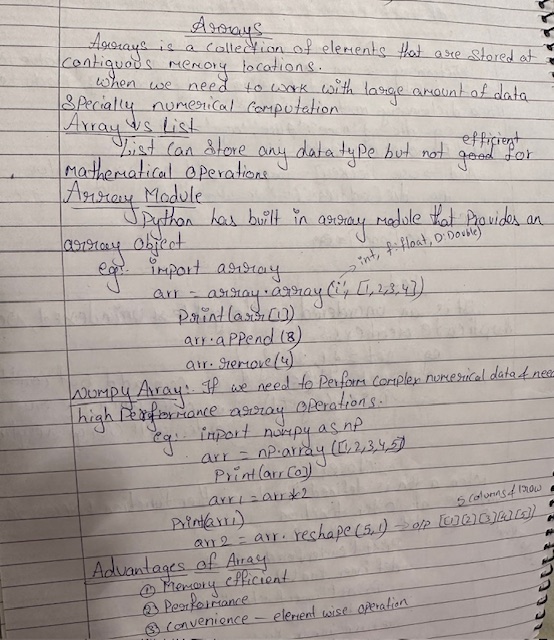 Arrays
Arrays is a collection of elements that are stored at
contiguous memory locations.
when we need to work with large amount of data
specially numerical computation
Array vs List
efficient
List can store any datatype but not good for
mathematical operations
Array Module
Python has built in array module that Provides an
array object
int, f:float, D:Double)
eg:- import array
arr = array.array('i', [1,2,3,4])
Print(arr[1])
arr.append(8)
arr.remove(4)
Numpy Array:- If we need to Perform complex numerical data & need
high Performance array operations.
eg:- import numpy as np
arr = np.array([1,2,3,4,5])
Print(arr[0])
arr1 = arr*2
5 columns & 1 row
Print(arr1)
arr2 = arr.reshape(5,1) → o/p [[1][2][3][4][5]]
Advantages of Array
① Memory efficient
② Performance
③ Convenience - element wise operation